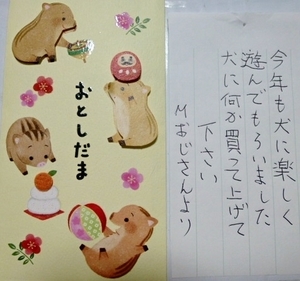 おとしだま
今年も犬に楽しく
遊んでもらいました
犬に何か買って上げて
下さい
Mおじさんより